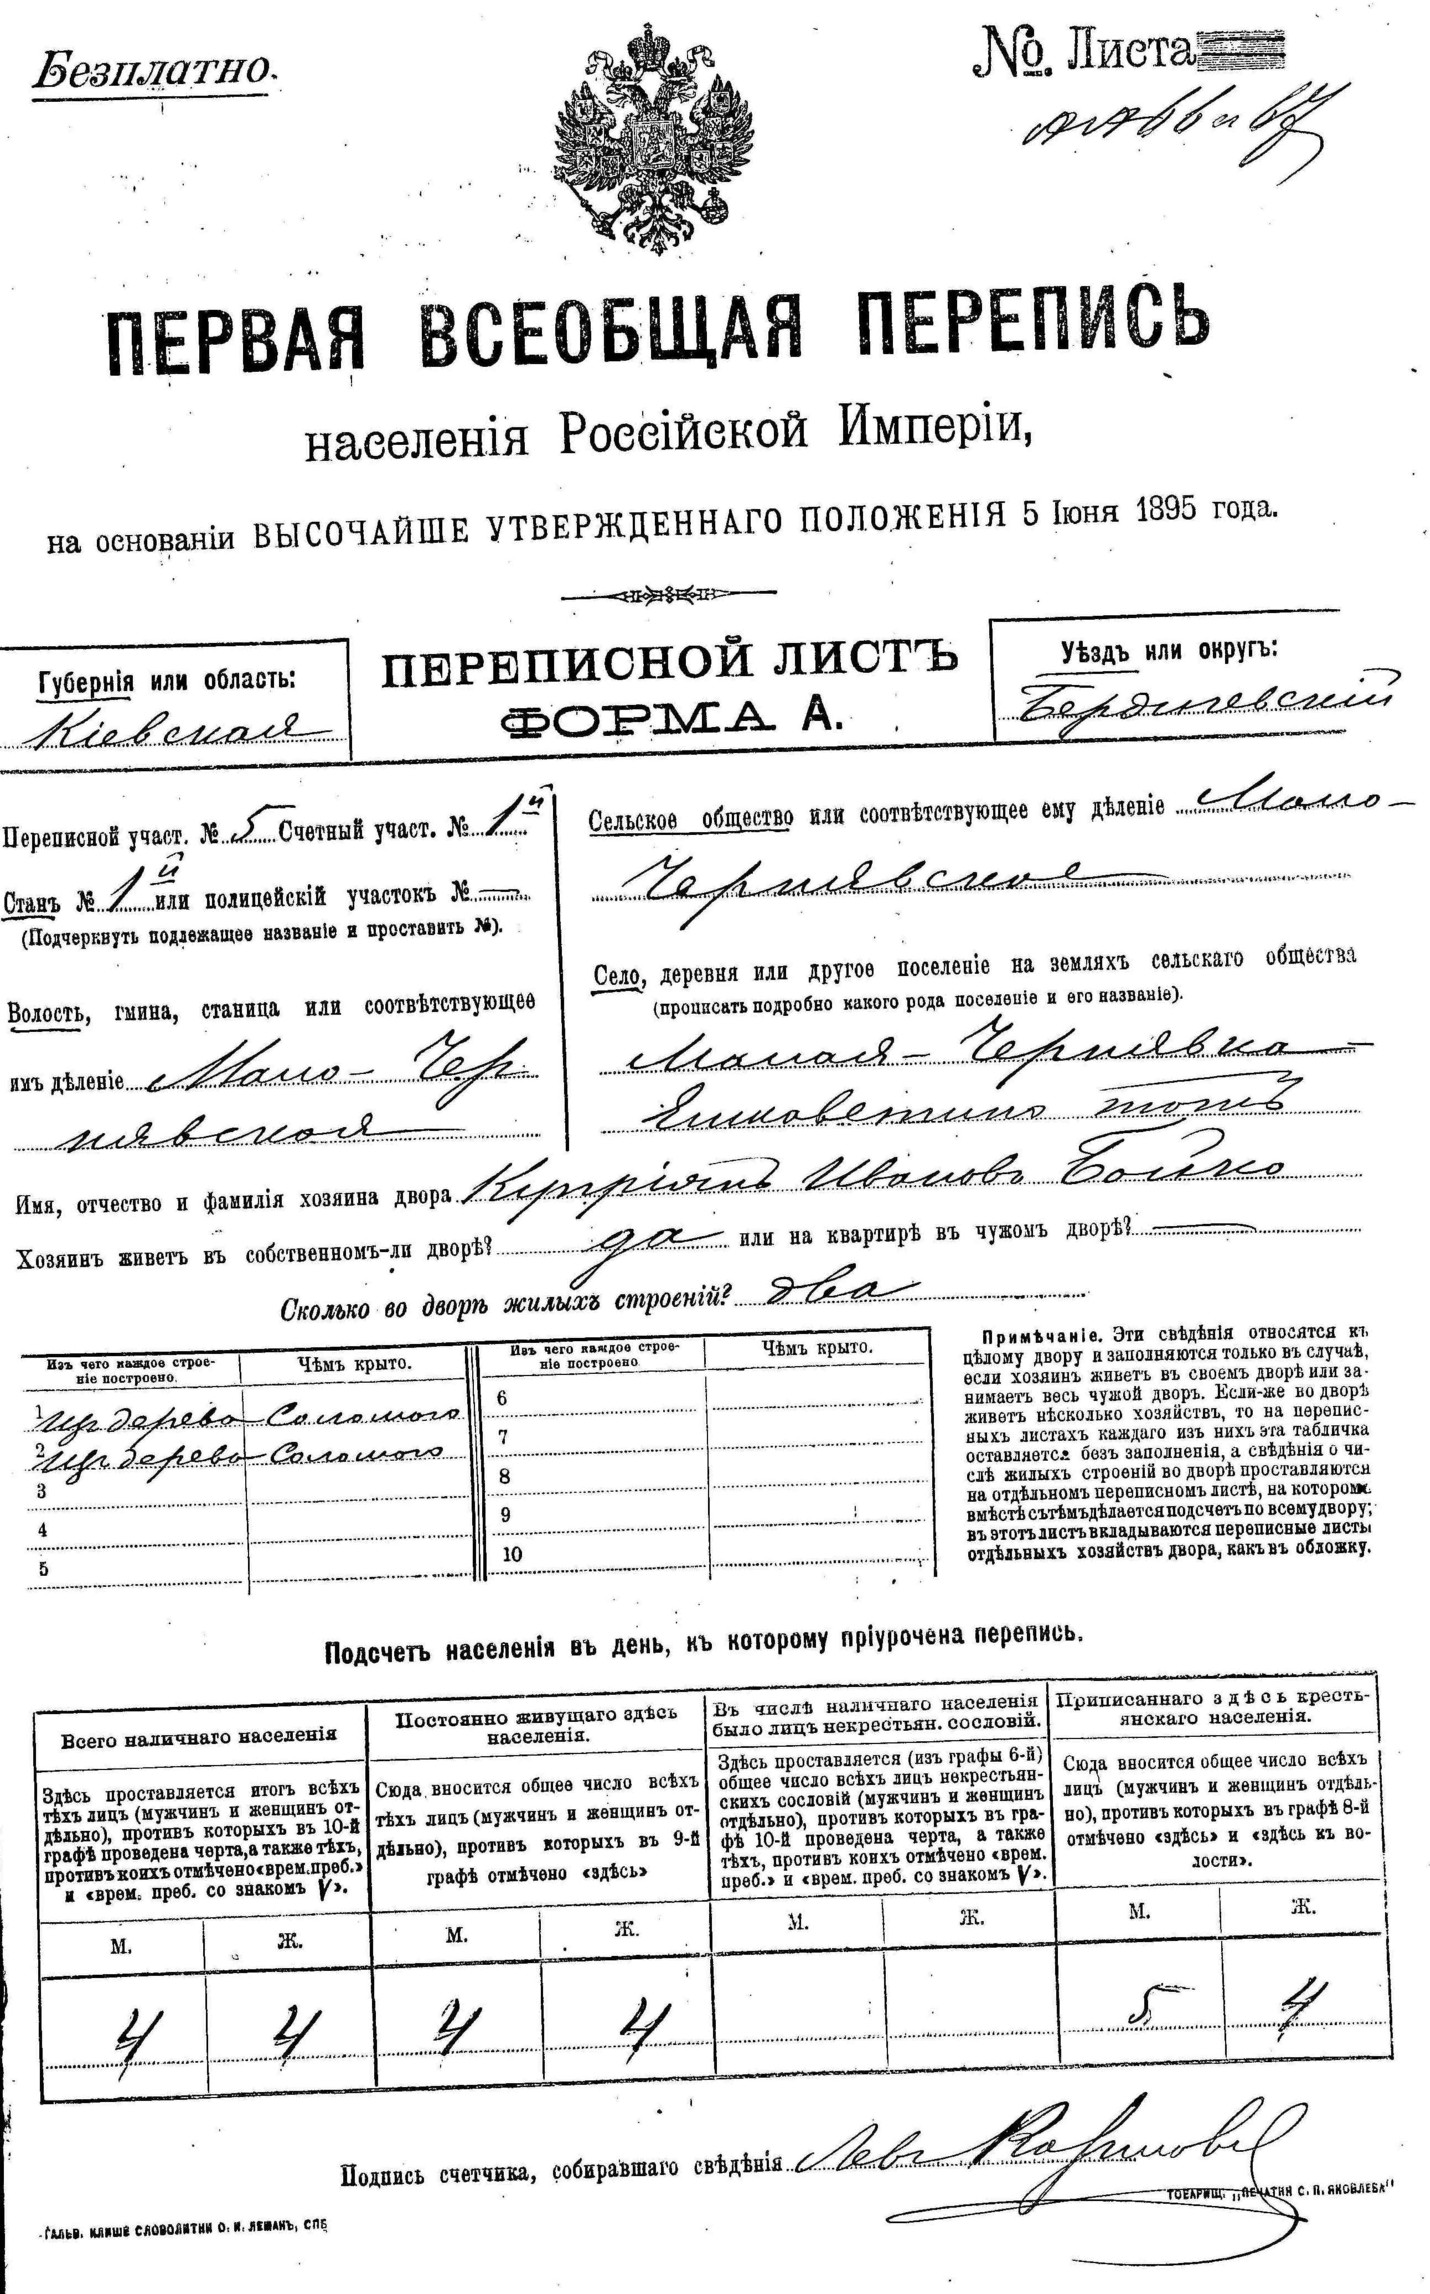 Безплатно.
№. Листа
66 и 67
ПЕРВАЯ ВСЕОБЩАЯ ПЕРЕПИСЬ
населенія Россійской Имперіи,
на основаніи ВЫСОЧАЙШЕ УТВЕРЖДЕННАГО ПОЛОЖЕНІЯ 5 Іюня 1895 года.
Губернія или область:
Кіевская
ПЕРЕПИСНОЙ ЛИСТЪ
ФОРМА А.
Уѣздъ или округъ:
Бердичевскій
Переписной участ. № 5 Счетный участ. № 1й
Станъ № 1й или полицейскій участокъ № —
(Подчеркнуть подлежащее названіе и проставить №).
Волость, гмина, станица или соотвѣтствующее
имъ дѣленіе Мало-Чер
нявская
Сельское общество или соотвѣтствующее ему дѣленіе Мало-
Чернявское
Село, деревня или другое поселеніе на земляхъ сельскаго общества
(прописать подробно какого рода поселеніе и его названіе).
Малая-Чернявка-
тожъ
Имя, отчество и фамилія хозяина двора Купріянъ Ивановъ Бойко
Хозяинъ живетъ въ собственномъ-ли дворѣ? да или на квартирѣ въ чужомъ дворѣ? —
Сколько во дворѣ жилыхъ строеній? два
Изъ чего каждое строе-
ніе построено.
Чѣмъ крыто.
Изъ чего каждое строе-
ніе построено
Чѣмъ крыто.
1 Изъ дерева Соломою
2 Изъ дерева Соломою
3
4
5
6
7
8
9
10
Примѣчаніе. Эти свѣдѣнія относятся къ
цѣлому двору и заполняются только въ случаѣ,
если хозяинъ живетъ въ своемъ дворѣ или за-
нимаетъ весь чужой дворъ. Если-же во дворѣ
живетъ нѣсколько хозяйствъ, то на перепис-
ныхъ листахъ каждаго изъ нихъ эта табличка
оставляется безъ заполненія, а свѣдѣнія о чи-
слѣ жилыхъ строеній во дворѣ проставляются
на отдѣльномъ переписномъ листѣ, на которомъ
вмѣстѣ съ тѣмъ дѣлается подсчетъ по всему двору;
въ этотъ листъ вкладываются переписные листы
отдѣльныхъ хозяйствъ двора, какъ въ обложку.
Подсчетъ населенія въ день, къ которому пріурочена перепись.
Всего наличнаго населенія
Здѣсь проставляется итогъ всѣхъ
тѣхъ лицъ (мужчинъ и женщинъ от-
дѣльно), противъ которыхъ въ 10-й
графѣ проведена черта, а также тѣхъ,
противъ коихъ отмѣчено «врем. преб.»
и «врем. преб. со знакомъ V».
Постоянно живущаго здѣсь
населенія.
Сюда вносится общее число всѣхъ
тѣхъ лицъ (мужчинъ и женщинъ от-
дѣльно), противъ которыхъ въ 9-й
графѣ отмѣчено «здѣсь»
Въ числѣ наличнаго населенія
было лицъ некрестьян. сословій.
Здѣсь проставляется (изъ графы 6-й)
общее число всѣхъ лицъ некрестьян-
скихъ сословій (мужчинъ и женщинъ
отдѣльно), противъ которыхъ въ гра-
фѣ 10-й проведена черта, а также
тѣхъ, противъ коихъ отмѣчено «врем.
преб.» и «врем. преб. со знакомъ V».
Приписаннаго здѣсь кресть-
янскаго населенія.
Сюда вносится общее число всѣхъ
лицъ (мужчинъ и женщинъ отдѣль-
но), противъ которыхъ въ графѣ 8-й
отмѣчено «здѣсь» и «здѣсь къ во-
лости».
М. Ж. М. Ж. М. Ж. М. Ж.
4 4 4 4 5 4
Подпись счетчика, собиравшаго свѣдѣнія Левъ
ТОВАРИЩ. „ПЕЧАТНЯ С. П. ЯКОВЛЕВА"
Гальв. клише словолитни О. И. Леманъ, СПБ